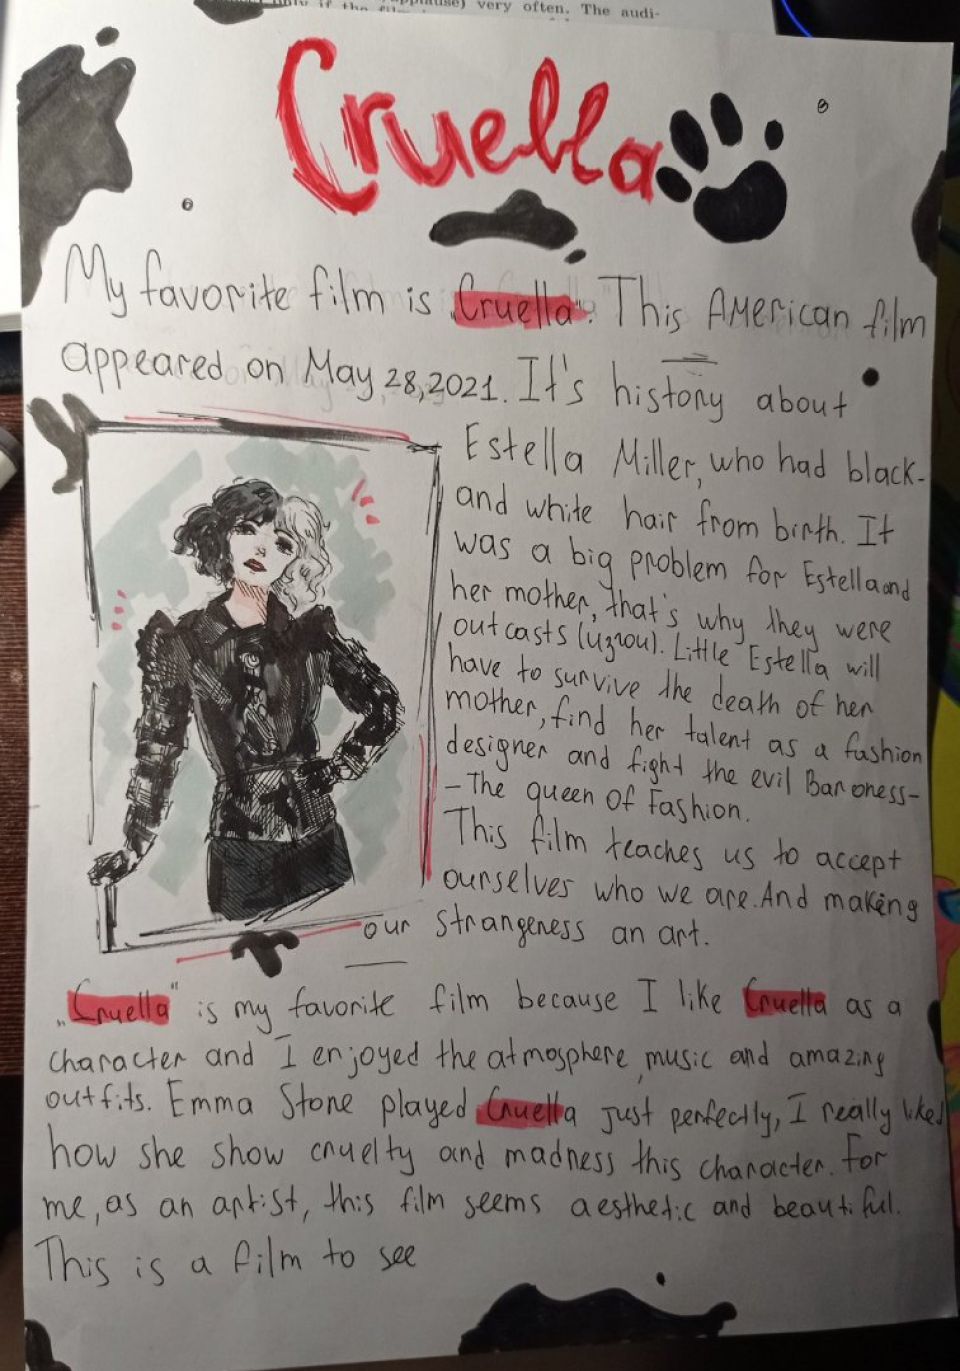 very often. The audi-
Cruella
My favorite film is „Cruella". This American film
appeared on May, 28, 2021. It's history about
Estella Miller, who had black-
and white hair from birth. It
was a big problem for Estella and
her mother, that's why they were
outcasts (изгои). Little Estella will
have to survive the death of her
mother, find her talent as a fashion
designer and fight the evil Baroness-
-The queen of Fashion.
This film teaches us to accept
ourselves who we are. And making
our strangeness an art.
„Cruella" is my favorite film because I like Cruella as a
character and I enjoyed the atmosphere, music and amazing
outfits. Emma Stone played Cruella just perfectly, I really liked
how she show cruelty and madness this character. For
me, as an artist, this film seems aesthetic and beautiful.
This is a film to see